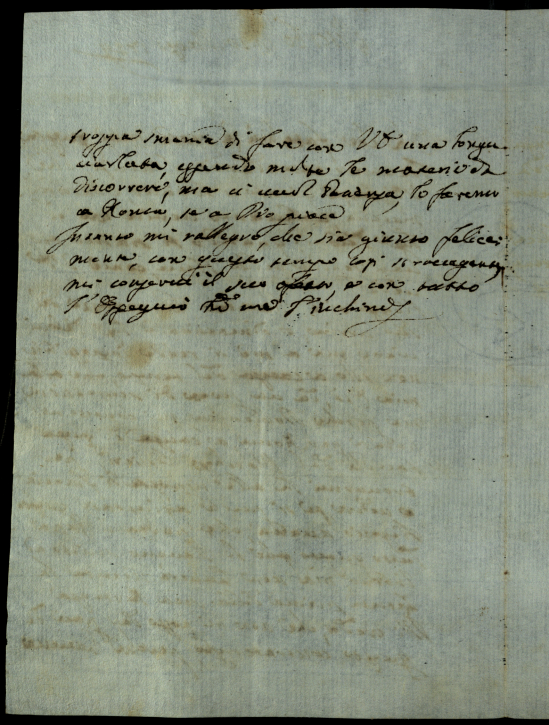 troppa smania di fare con VS una longa
ciarlata, essendo molte le materie da
discorrere, ma ci vuol pacienza, lo faremo
a Roma, se a Dio piace
Intanto mi rallegro, che sia giunto felice-
mente, con questo tempo così stravagante,
mi conservi il suo affetto, e con tutto
l'ossequio me l'inchino